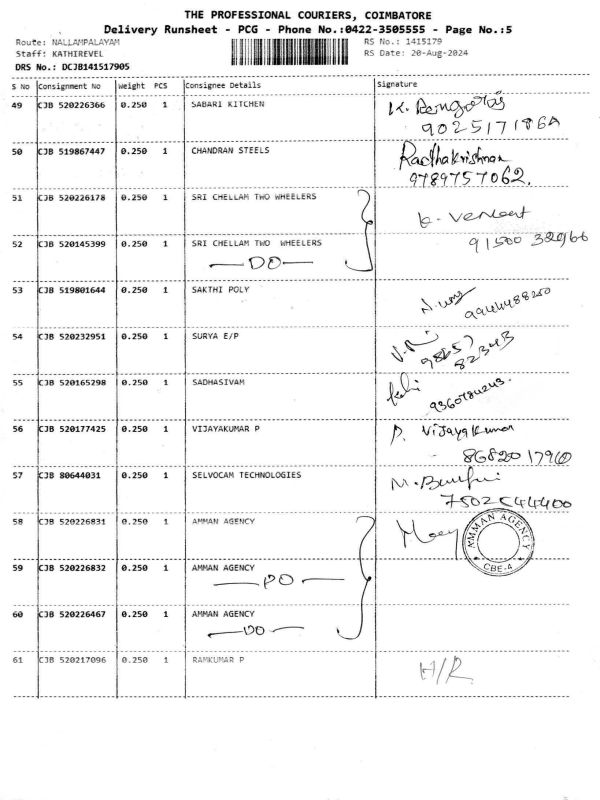 THE PROFESSIONAL COURIERS, COIMBATORE
Delivery Runsheet - PCG - Phone No.:0422-3505555 - Page No.:5
Route: NALLAMPALAYAM RS No.: 1415179
Staff: KATHIREVEL RS Date: 20-Aug-2024
DRS No.: DCJB141517905
S No Consignment No Weight PCS Consignee Details Signature
49 CJB 520226366 0.250 1 SABARI KITCHEN
50 CJB 519867447 0.250 1 CHANDRAN STEELS Radhakrishnan
9789757062.
51 CJB 520226178 0.250 1 SRI CHELLAM TWO WHEELERS
52 CJB 520145399 0.250 1 SRI CHELLAM TWO WHEELERS
DO
53 CJB 519801644 0.250 1 SAKTHI POLY
54 CJB 520232951 0.250 1 SURYA E/P
55 CJB 520165298 0.250 1 SADHASIVAM
56 CJB 520177425 0.250 1 VIJAYAKUMAR P P. Vijayakumar
57 CJB 80644031 0.250 1 SELVOCAM TECHNOLOGIES
7502544400
58 CJB 520226831 0.250 1 AMMAN AGENCY AMMAN AGENCY
CBE-4
59 CJB 520226832 0.250 1 AMMAN AGENCY
DO
60 CJB 520226467 0.250 1 AMMAN AGENCY
DO
61 CJB 520217096 0.250 1 RAMKUMAR P H/R